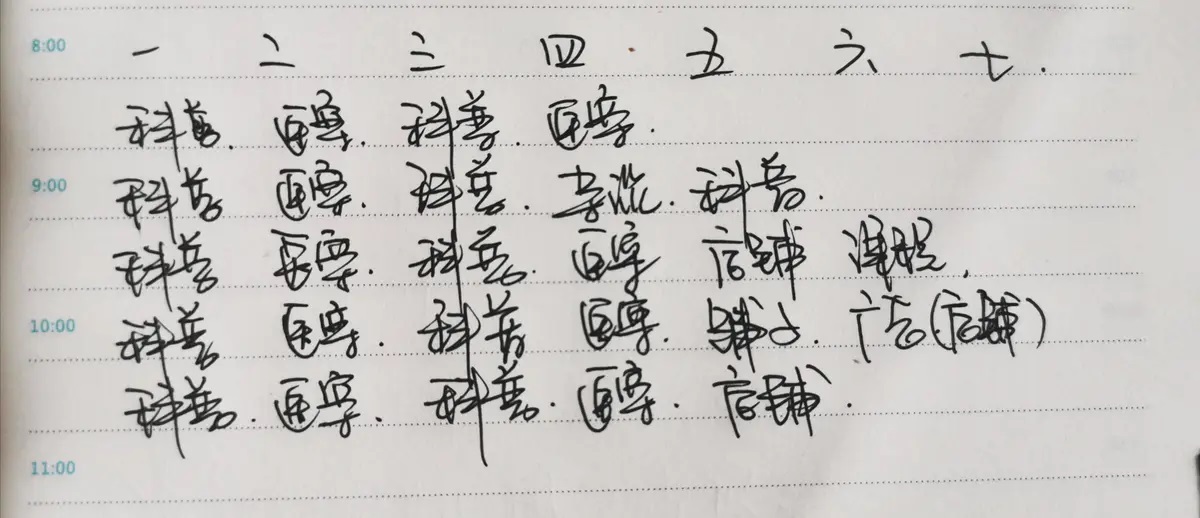 8:00 一 二 三 四 五 六 七.
科普. 医学. 科普. 医学.
9:00 科普 医学. 科普. 科普.
科普 医学. 科普. 医学 店铺 课程.
10:00 科普 医学. 科普 医学. 广告(店铺)
科普. 医学. 科普. 医学. 店铺.
11:00